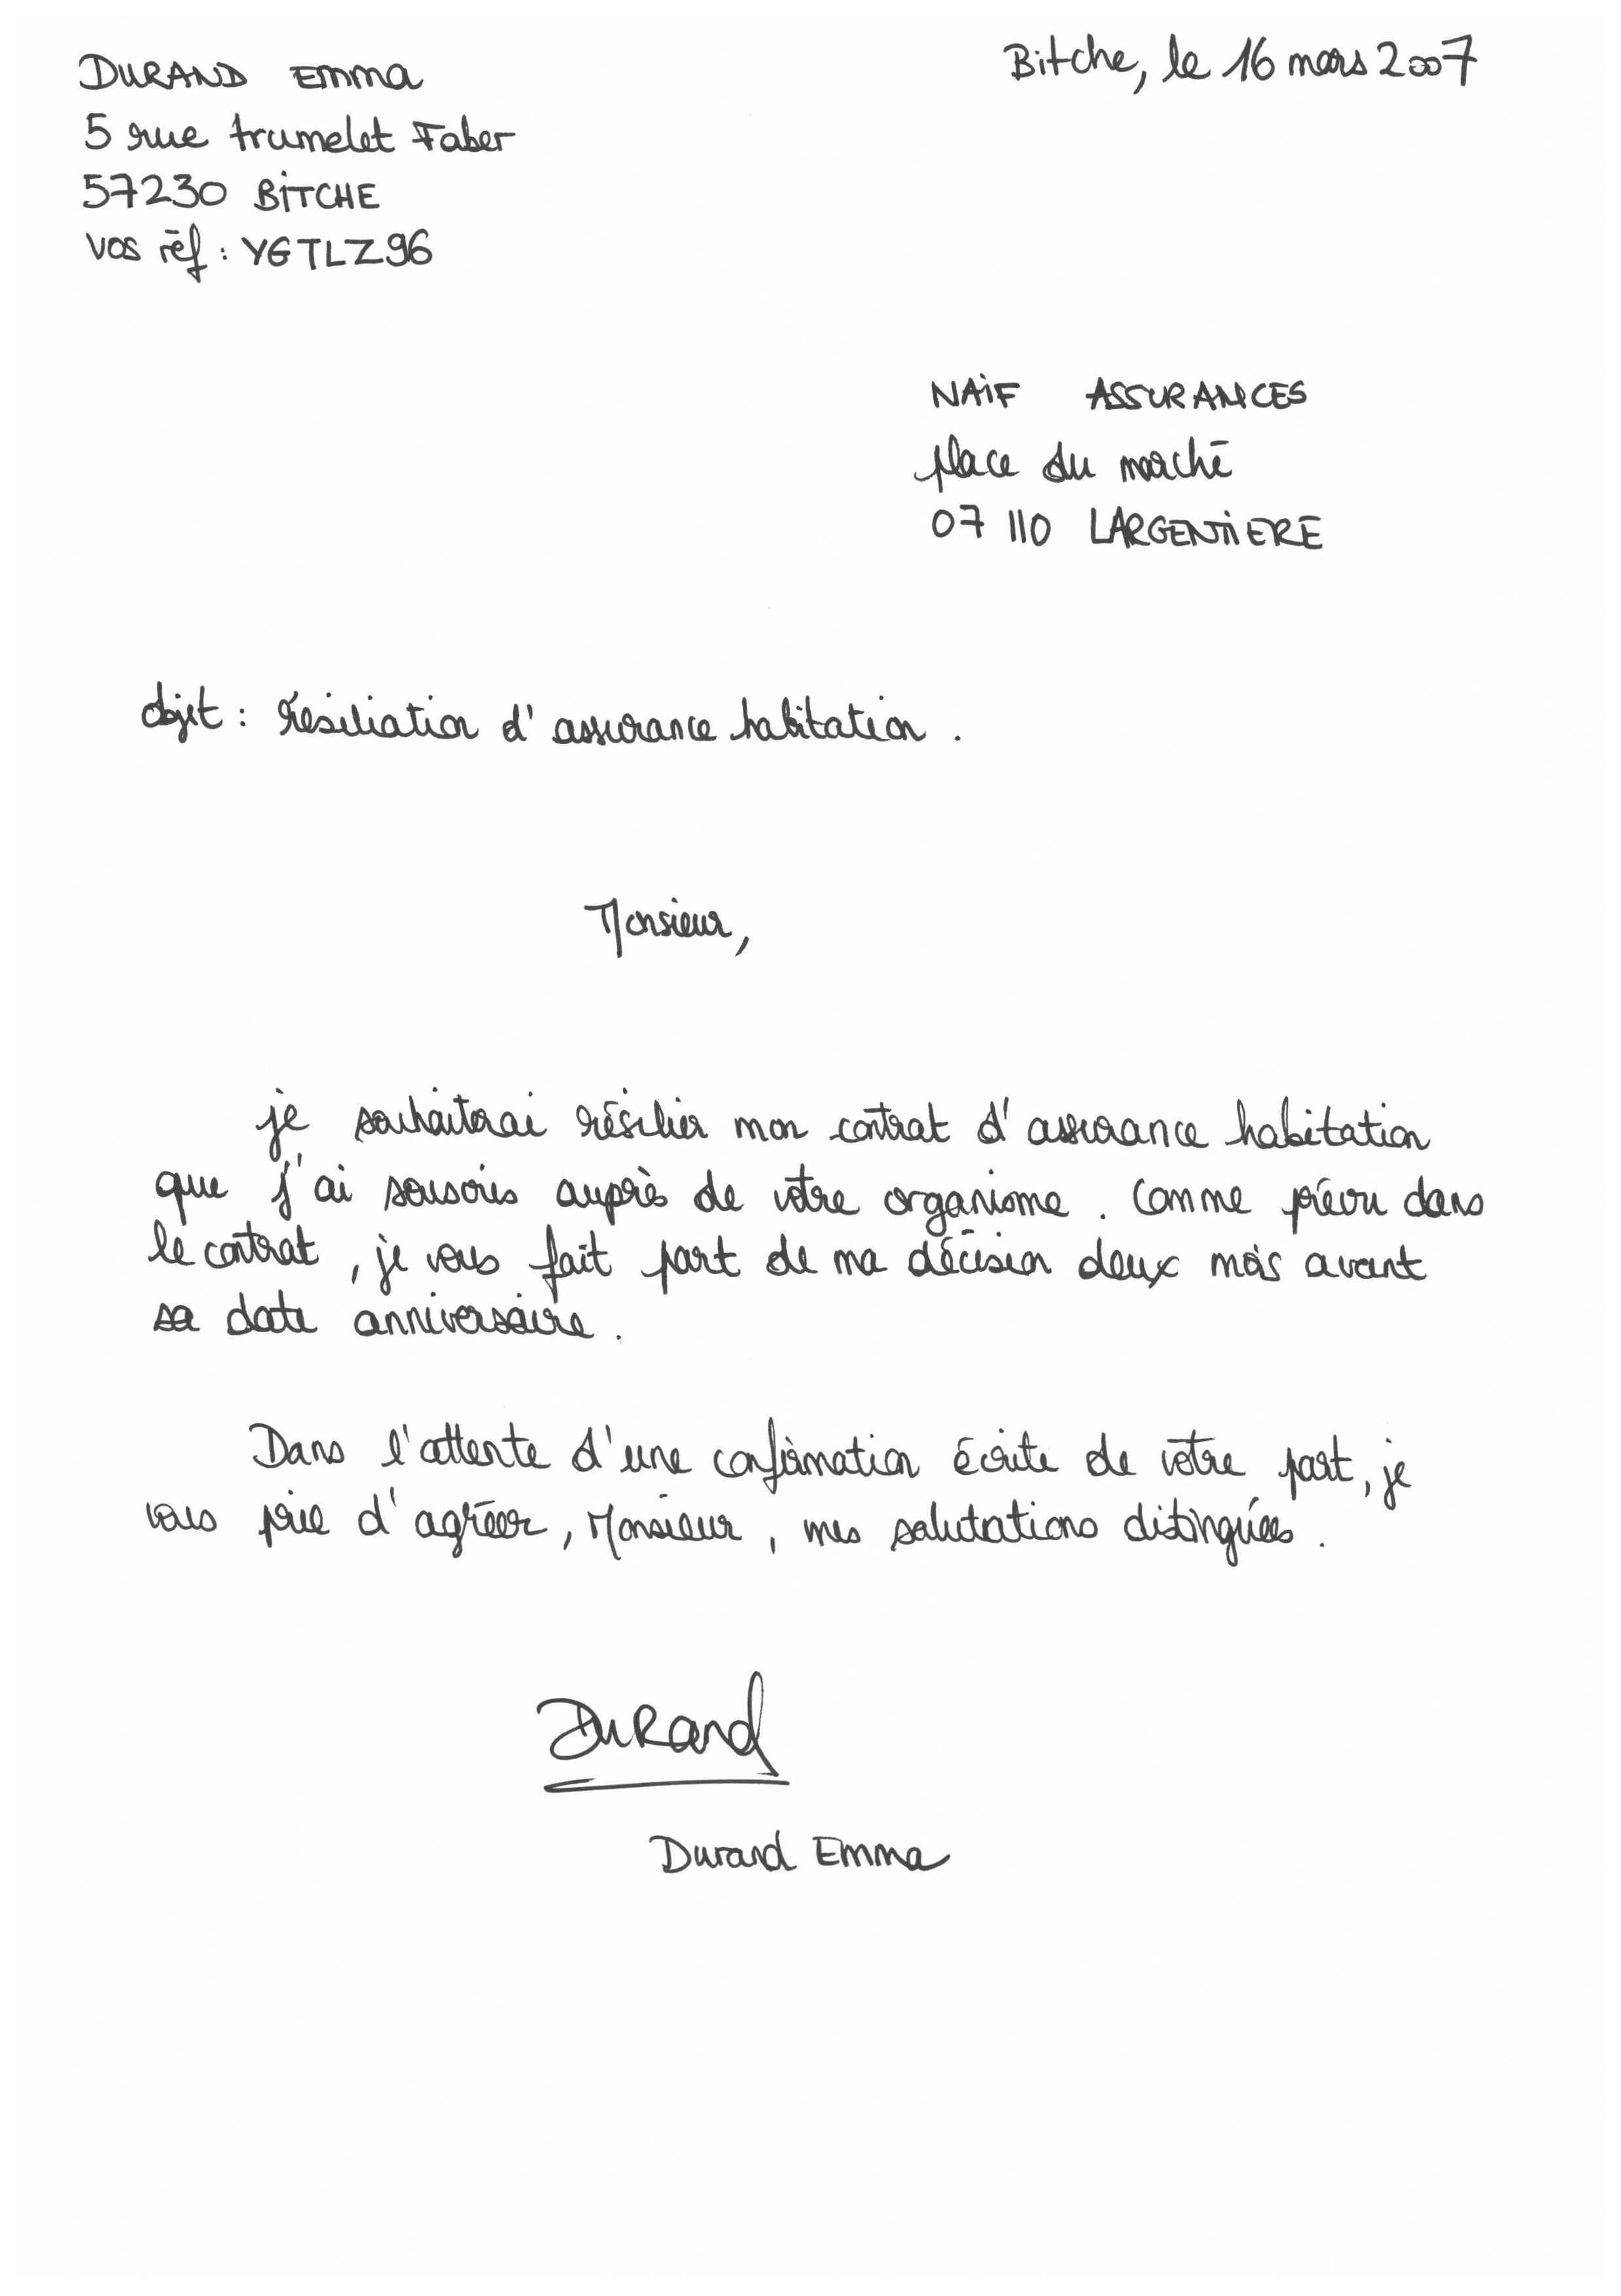 DURAND Emma
5 rue trumelet Faber
57230 BITCHE
vos réf : YGTLZ96
Bitche, le 16 mars 2007
NAIF ASSURANCES
place du marché
07 110 LARGENTIERE
objet : résiliation d'assurance habitation.
Monsieur,
je souhaiterai résilier mon contrat d'assurance habitation
que j'ai souscris auprès de votre organisme. Comme prévu dans
le contrat, je vous fait part de ma décision deux mois avant
sa date anniversaire.
Dans l'attente d'une confirmation écrite de votre part, je
vous prie d'agréer, Monsieur, mes salutations distinguées.
Durand
Durand Emma